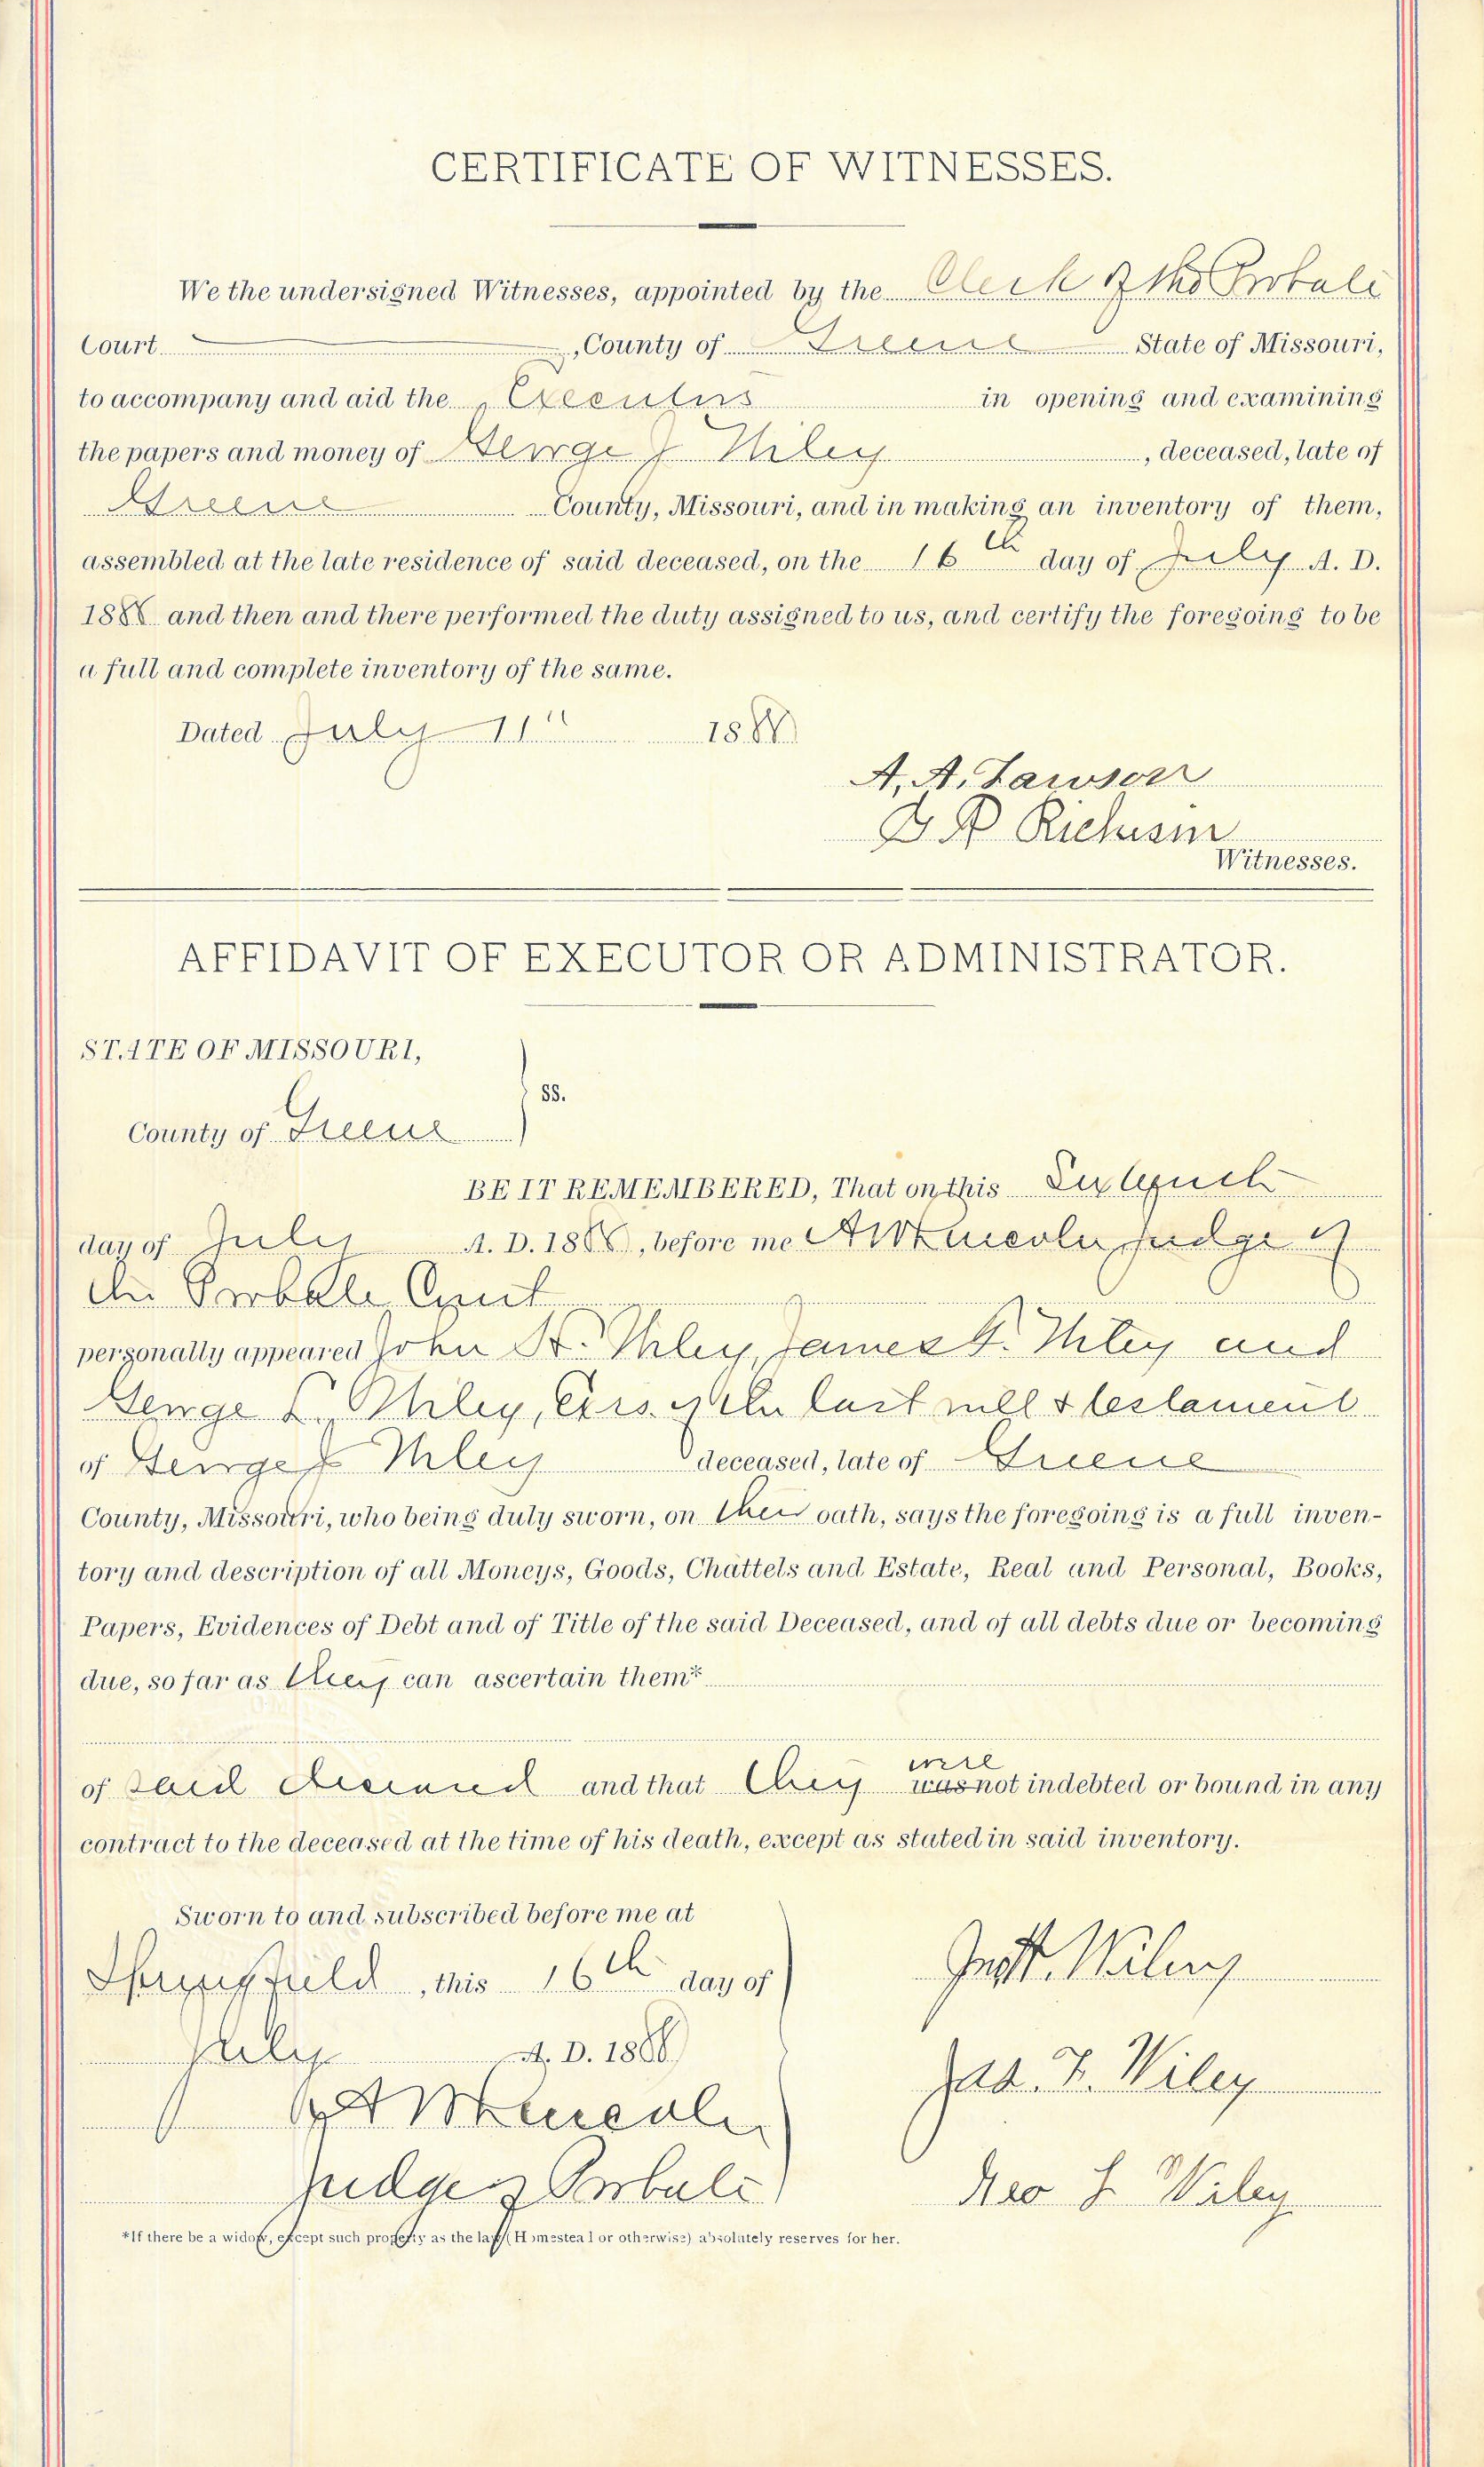 CERTIFICATE OF WITNESSES.
We the undersigned Witnesses, appointed by the Clerk of the Probate
Court , County of Greene State of Missouri,
to accompany and aid the Executors in opening and examining
the papers and money of George J Wiley , deceased, late of
Greene County, Missouri, and in making an inventory of them,
assembled at the late residence of said deceased, on the 16th day of July A. D.
1888 and then and there performed the duty assigned to us, and certify the foregoing to be
a full and complete inventory of the same.
Dated July 11" 1888
A. A. Lawson
Richison
Witnesses.
AFFIDAVIT OF EXECUTOR OR ADMINISTRATOR.
STATE OF MISSOURI,
ss.
County of Greene
BE IT REMEMBERED, That on this Sixteenth
day of July A. D. 1888, before me Judge of
the Probate Court
personally appeared John H. Wiley, James F. Wiley and
George L. Wiley, Exrs. of the last will & testament
of George J Wiley deceased, late of Greene
County, Missouri, who being duly sworn, on their oath, says the foregoing is a full inven-
tory and description of all Moneys, Goods, Chattels and Estate, Real and Personal, Books,
Papers, Evidences of Debt and of Title of the said Deceased, and of all debts due or becoming
due, so far as they can ascertain them*
of said deceased and that they were was not indebted or bound in any
contract to the deceased at the time of his death, except as stated in said inventory.
Sworn to and subscribed before me at
Springfield, this 16th day of
July A. D. 1888
Judge of Probate
Jno H. Wiley
Jas. F. Wiley
Geo L Wiley
*If there be a widow, except such property as the law (Homestead or otherwise) absolutely reserves for her.